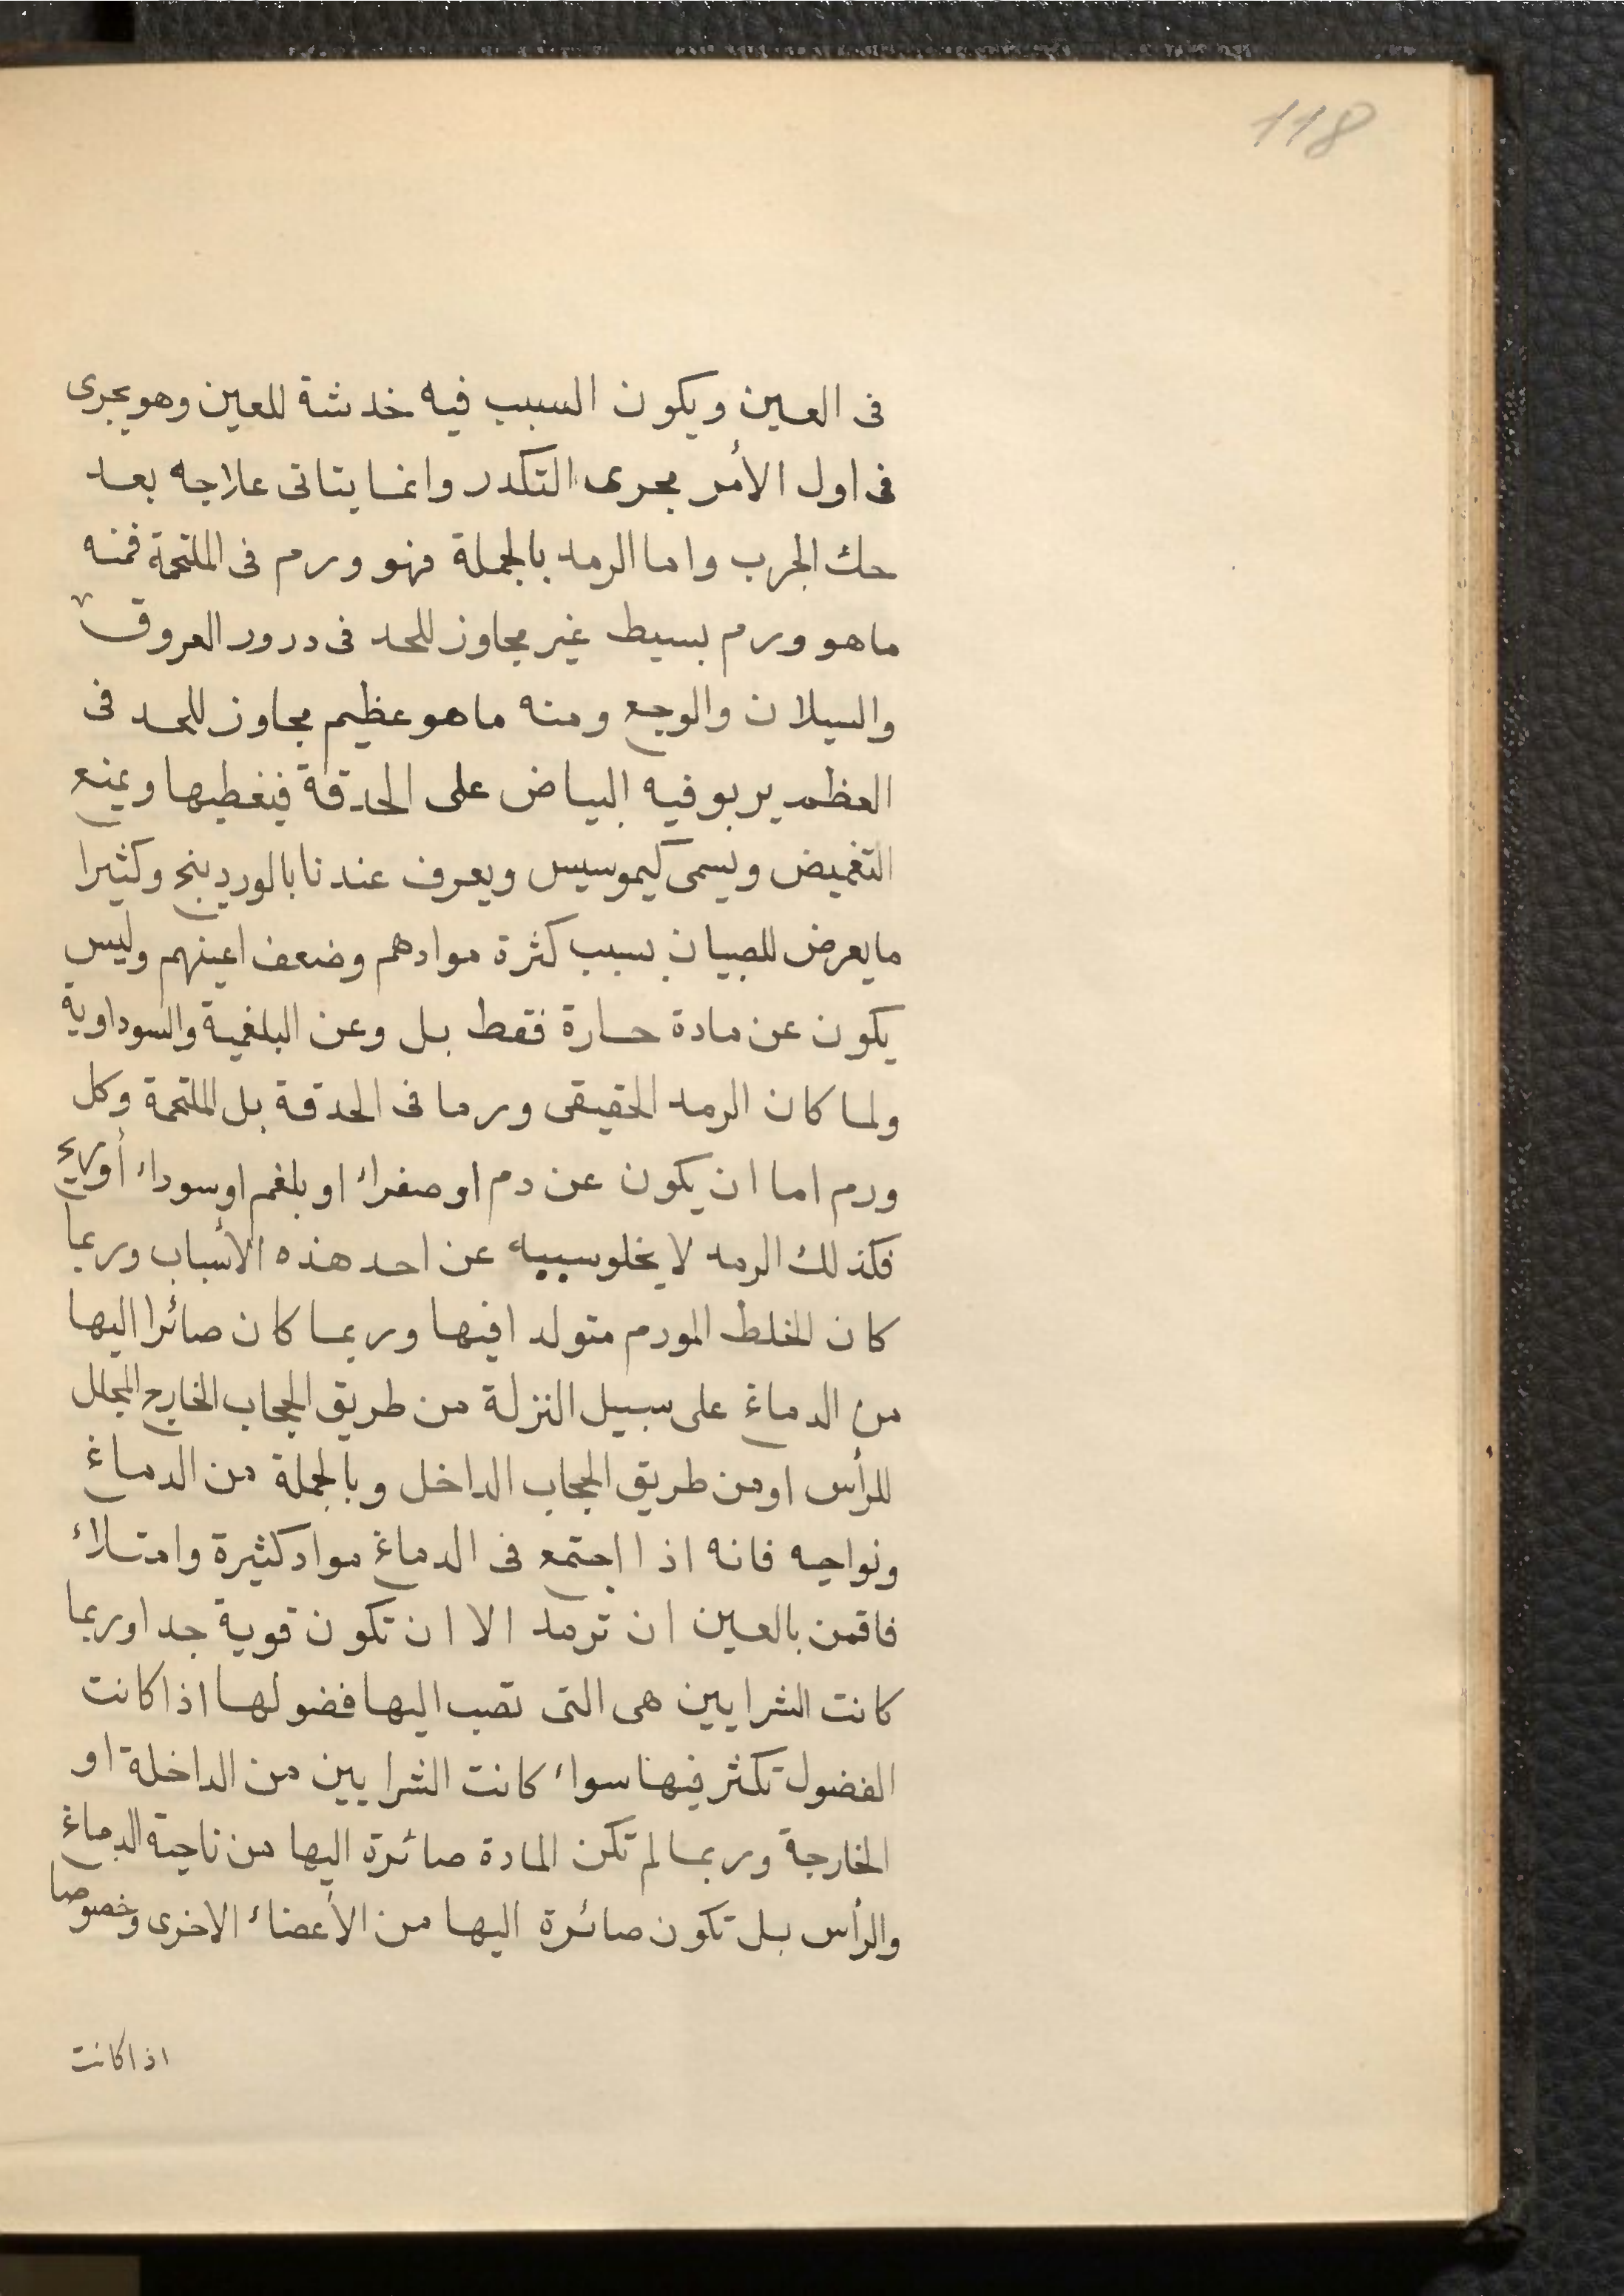 118
فى العين ويكون السبب فيه خدشة للعين وهو يجرى
فى اول الأمر مجرى التكدر وانما يتاتى علاجه بعد
حك الجرب واما الرمد بالجملة فهو ورم فى الملتحمة فمنه
ماهو ورم بسيط غير مجاوز للحد فى درور العروق
والسيلان والوجع ومنه ماهو عظيم مجاوز للحد فى
العظم يربو فيه البياض على الحدقة فيغطيها ويمنع
التغميض ويسمى كيموسيس ويعرف عندنا بالوردينج وكثيرا
ما يعرض للصبيان بسبب كثرة موادهم وضعف اعينهم وليس
يكون عن مادة حارة فقط بل وعن البلغمية والسوداوية
ولما كان الرمد الحقيقى ورما فى الحدقة بل الملتحمة وكل
ورم اما ان يكون عن دم او صفراء او بلغم او سوداء أو ريح
فكذلك الرمد لا يخلو سببه عن احد هذه الأسباب وربما
كان الخلط المورم متولدا فيها وربما كان صائرا اليها
من الدماغ على سبيل النزلة من طريق الحجاب الخارج المجلل
للرأس او من طريق الحجاب الداخل وبالجملة من الدماغ
ونواحيه فانه اذا اجتمع فى الدماغ مواد كثيرة وامتلاء
فاقمن بالعين ان ترمد الا ان تكون قوية جدا وربما
كانت الشرايين هى التى تصب اليها فضولها اذا كانت
الفضول تكثر فيها سواء كانت الشرايين من الداخلة او
الخارجة وربما لم تكن المادة صائرة اليها من ناحية الدماغ
والرأس بل تكون صائرة اليها من الأعضاء الاخرى وخصوصا
اذا كانت